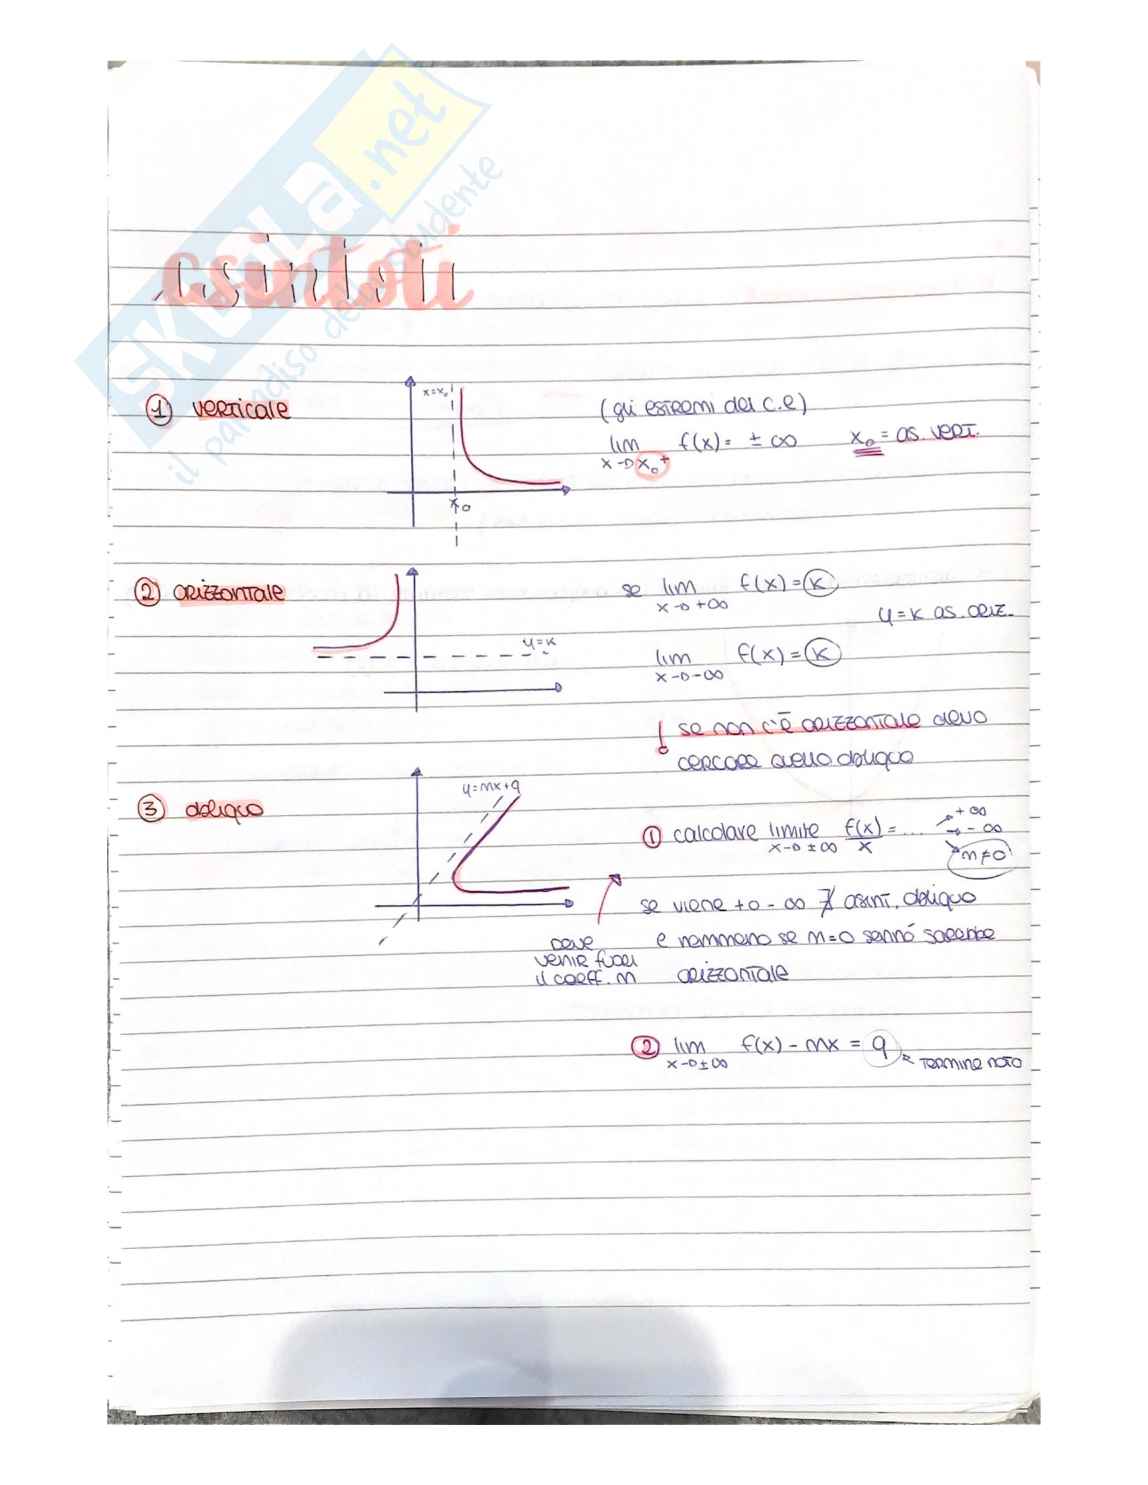 SKUOLA.net
il paradiso dello studente
asintoti
① verticale
x=x₀
x₀
(gli estremi del c.e)
lim f(x) = ± ∞
x→x₀⁺
x₀ = as. vert.
② orizzontale
y=k
se lim f(x) = k
x→+∞
y=k as. oriz.
lim f(x) = k
x→-∞
! se non c'è orizzontale devo
cercare quello obliquo
③ obliquo
y=mx+q
① calcolare limite f(x)/x = ...
x→±∞
+∞
-∞
m≠0
se viene + o - ∞ ∄ asint. obliquo
e nemmeno se m=0 sennó sarebbe
orizzontale
deve
venir fuori
il coeff. m
② lim f(x) - mx = q
x→±∞
termine noto